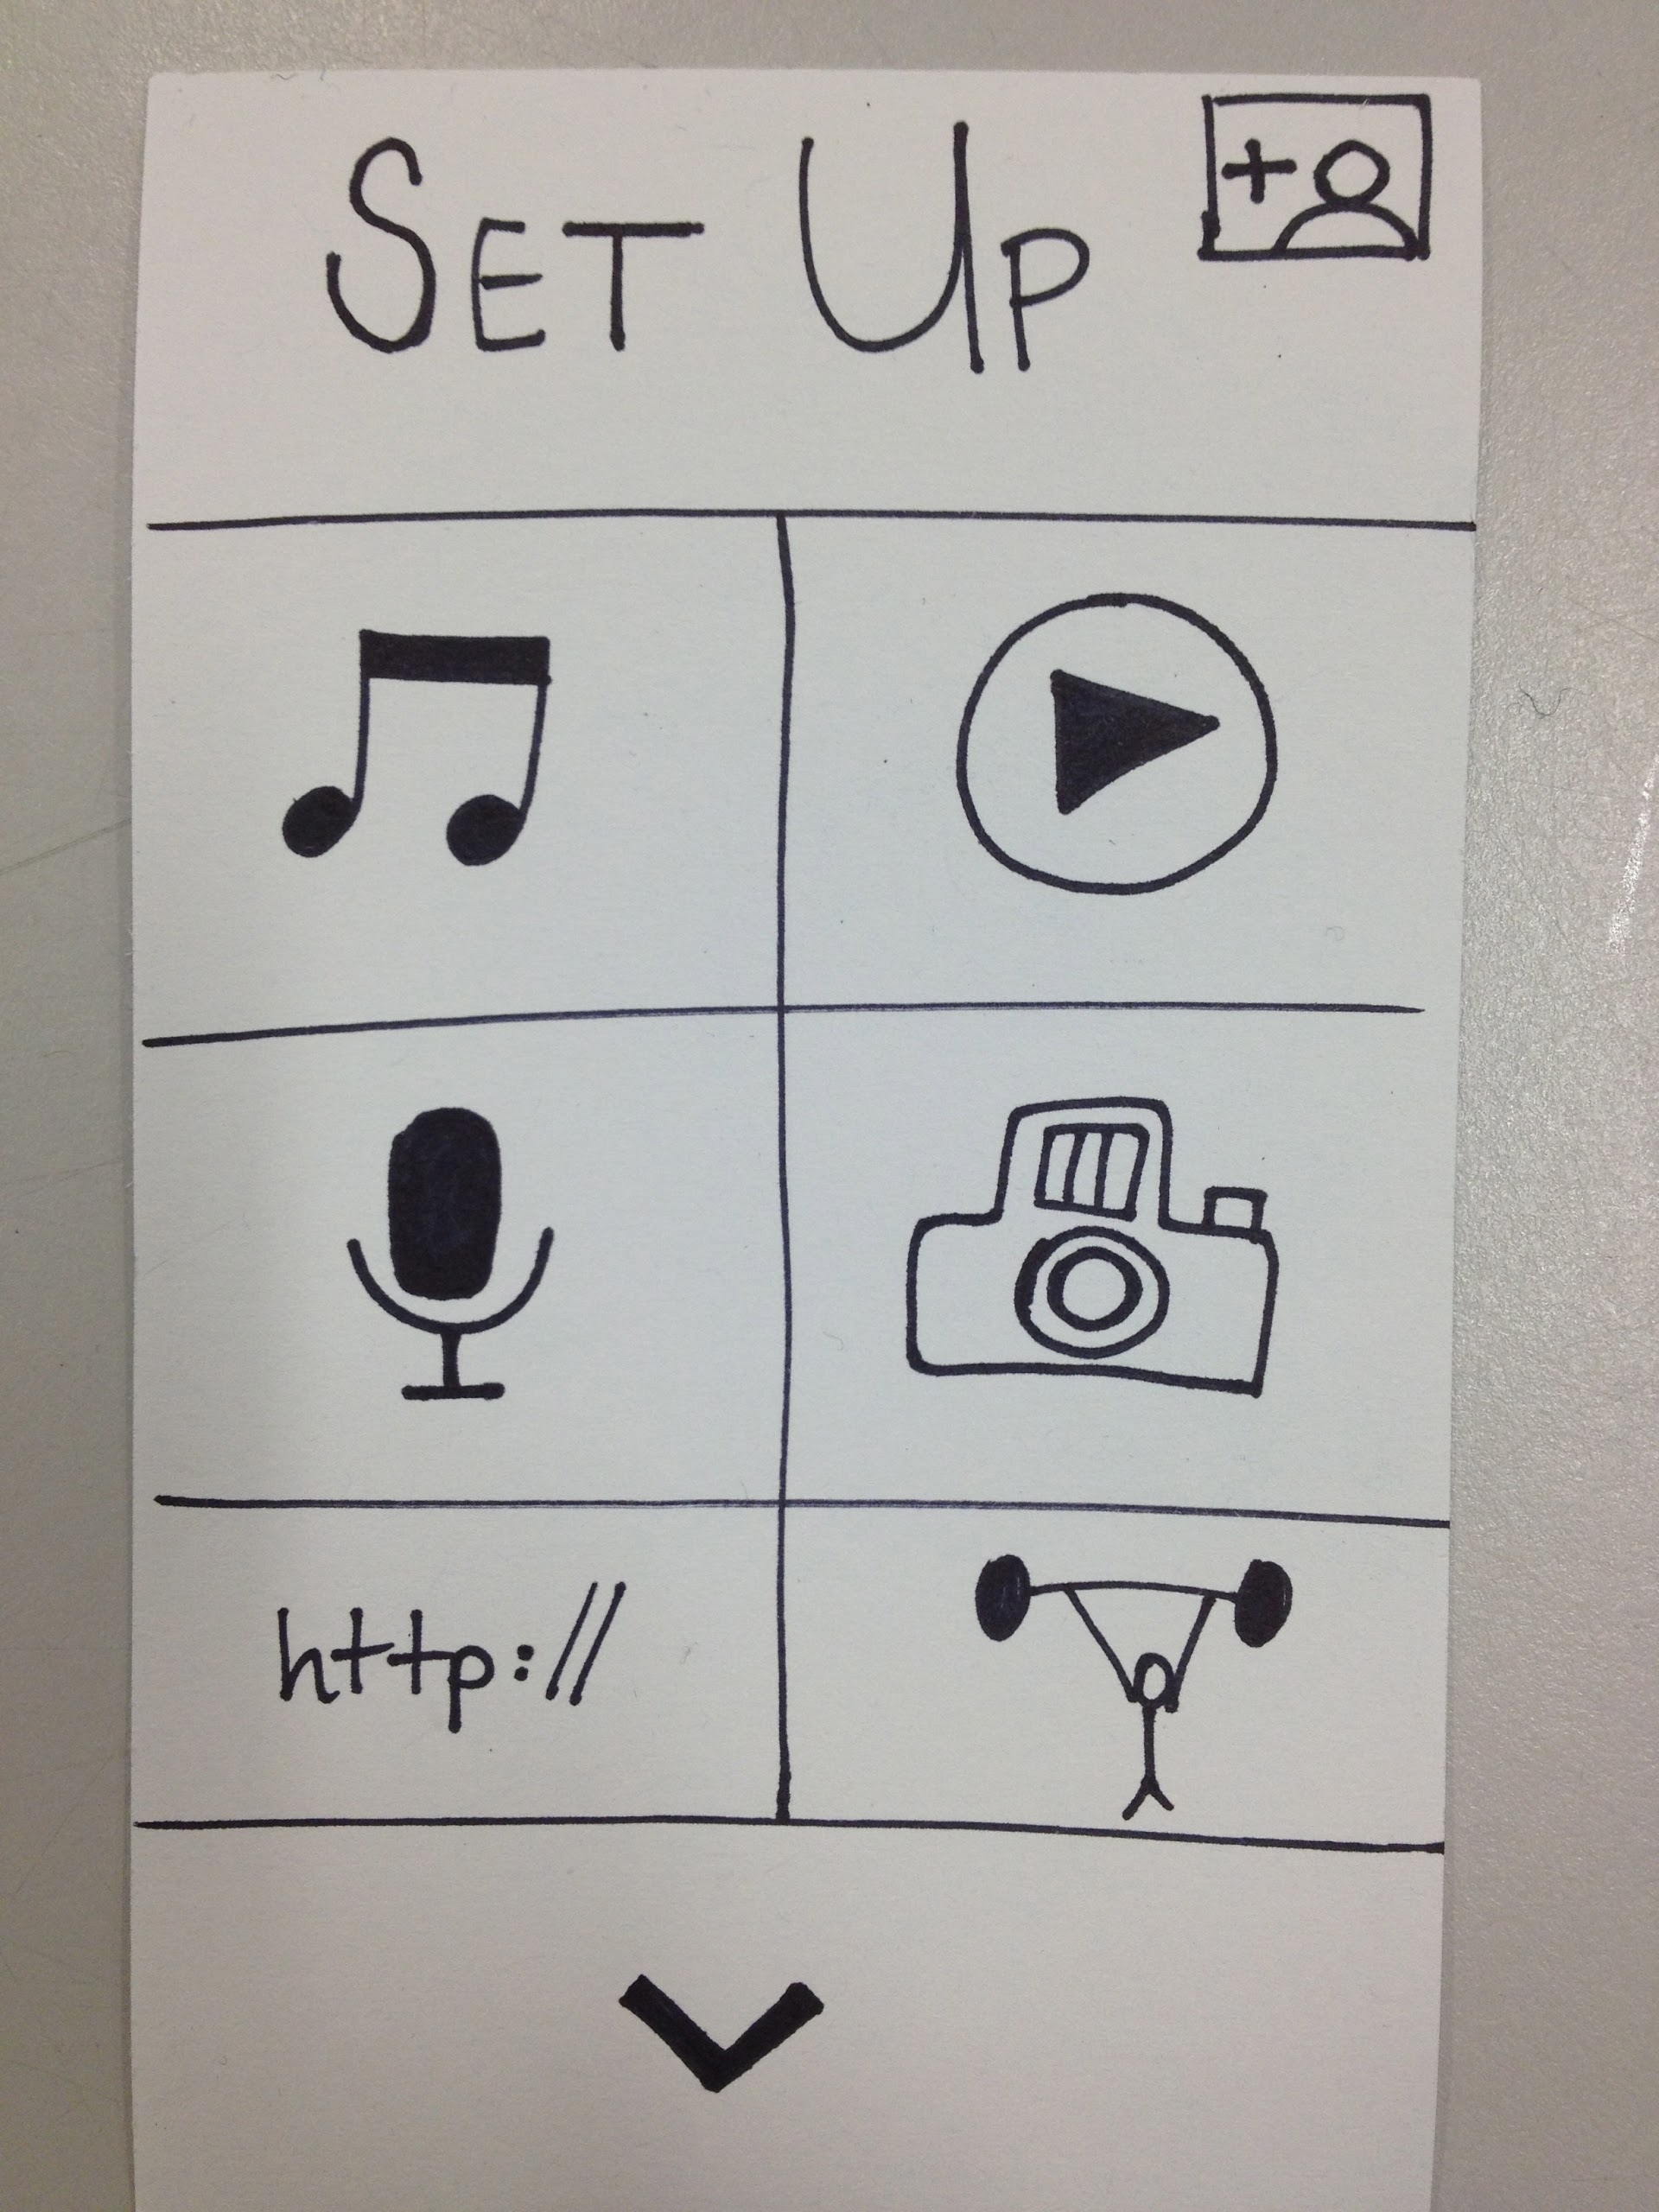 SET UP
http://